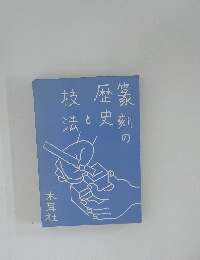 篆刻の
歴史と
技法
木耳社